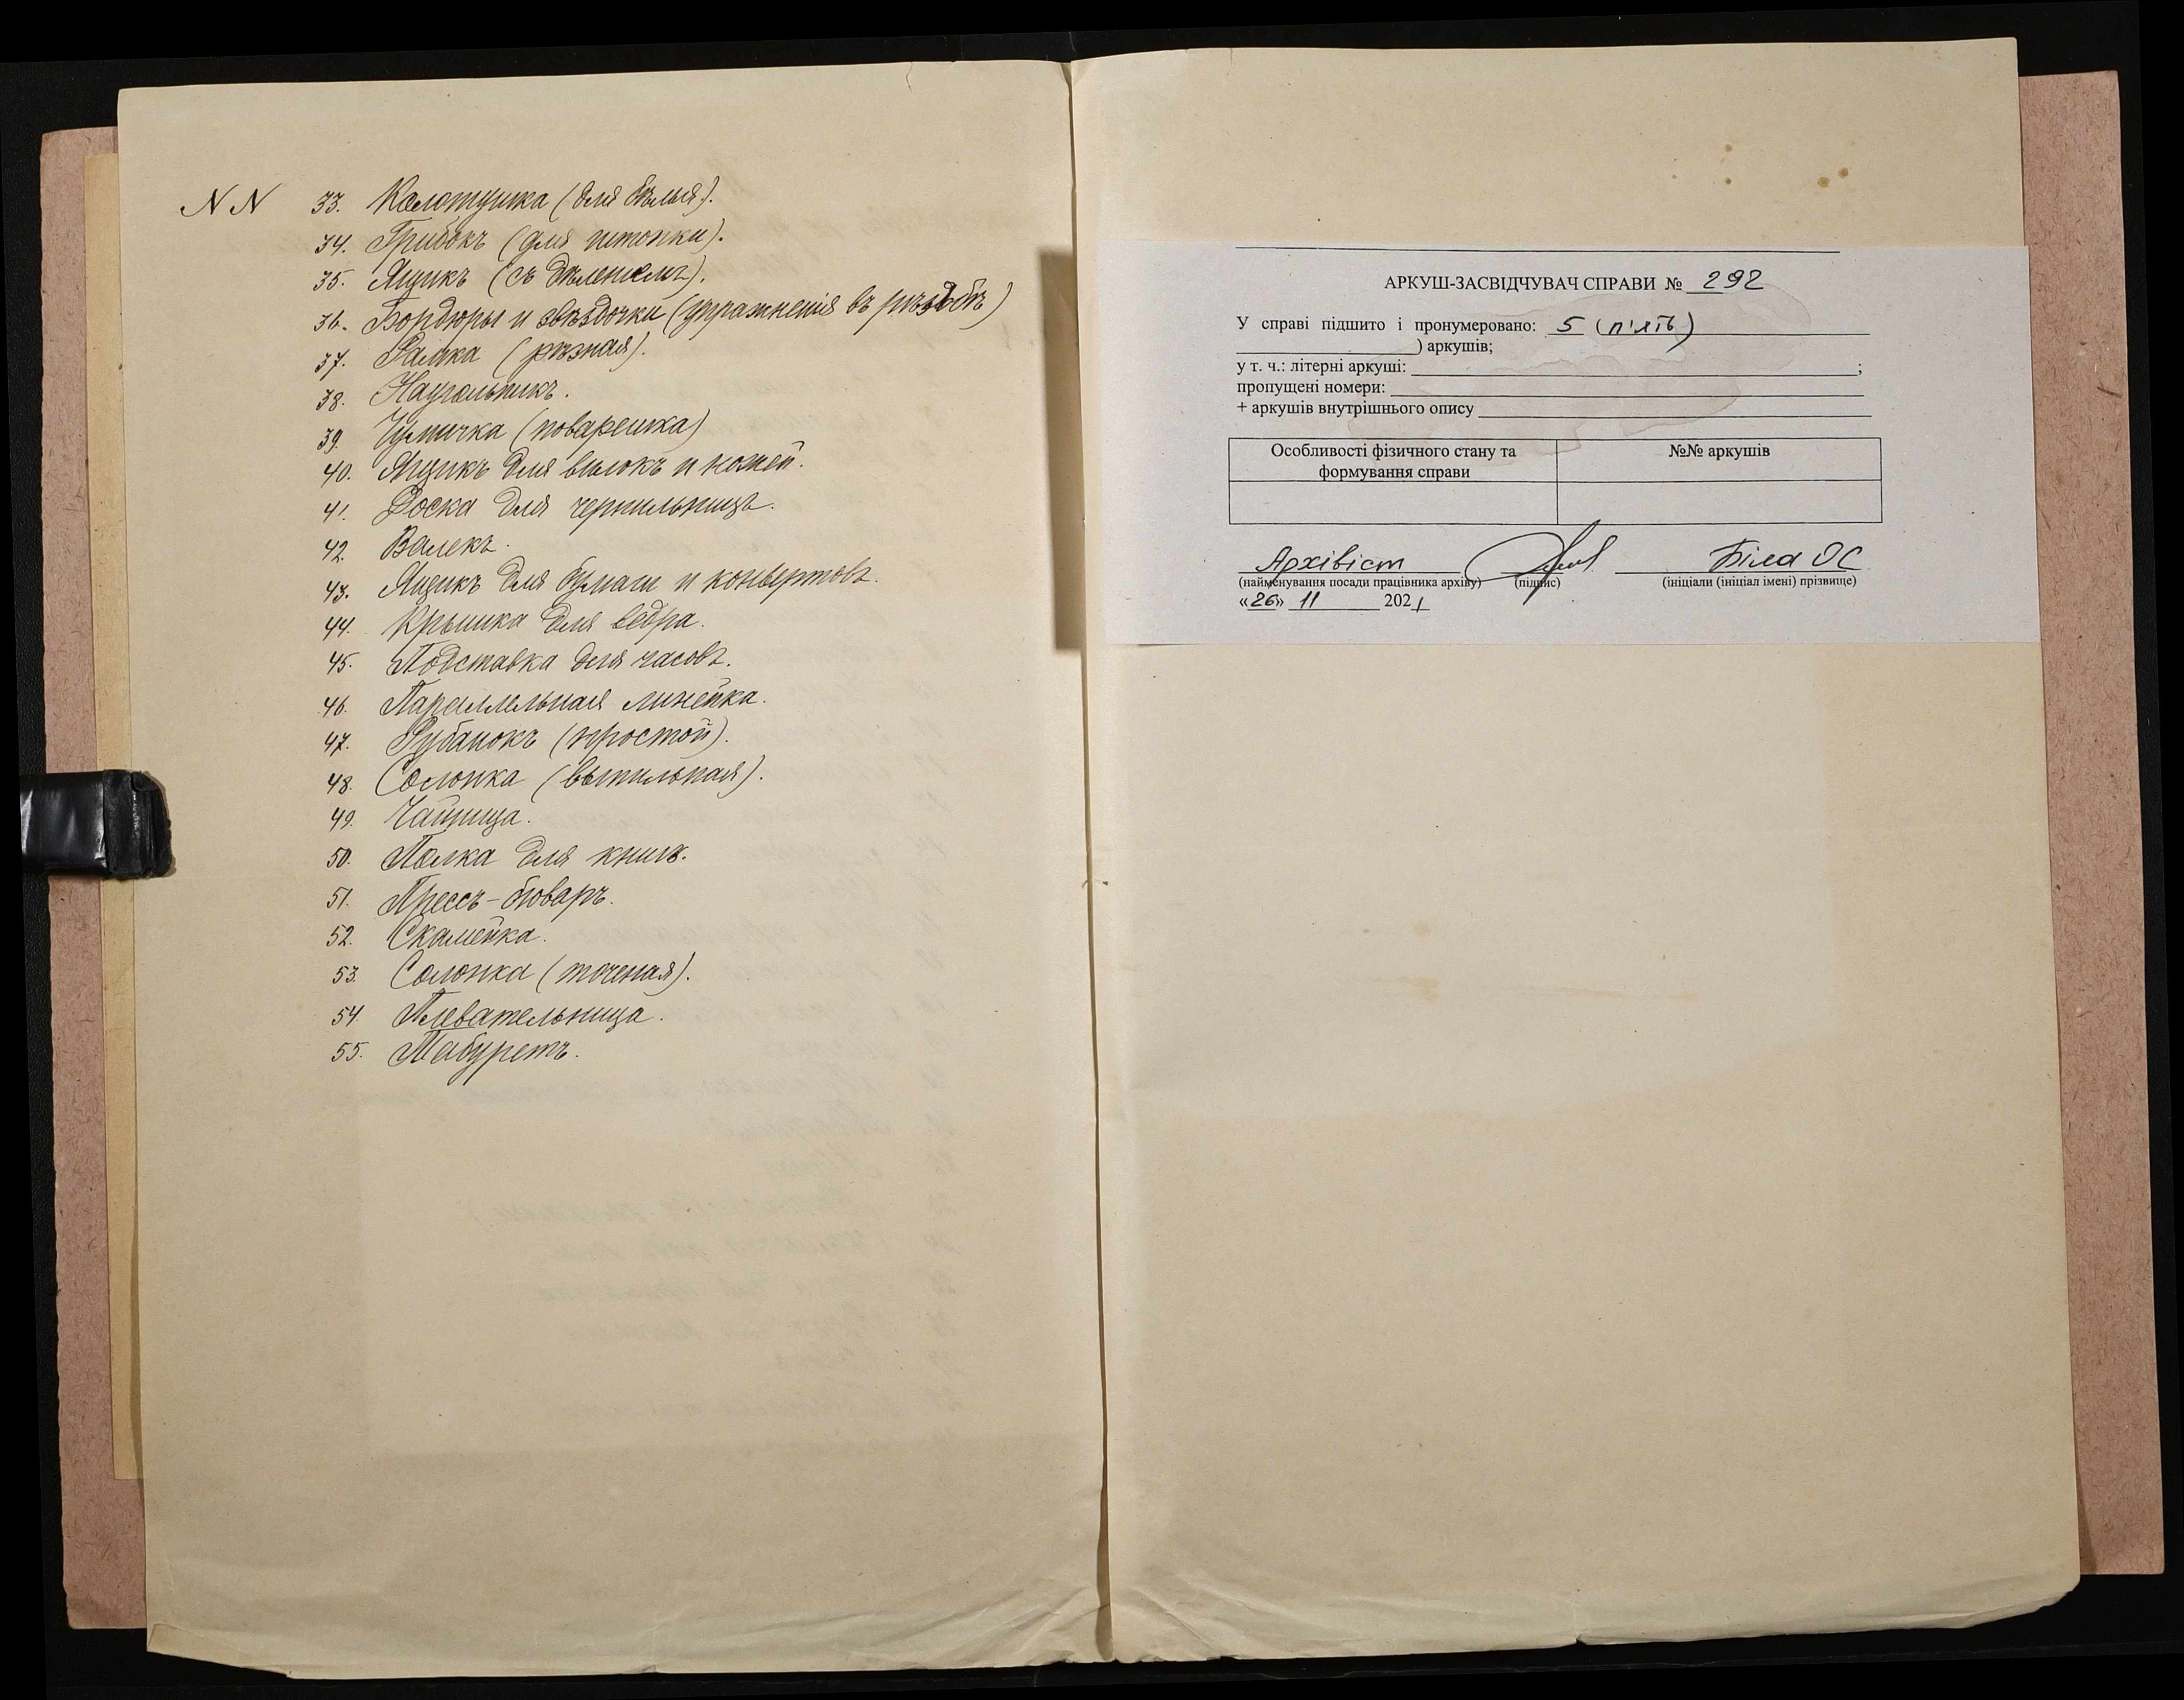 NN 33. Колотушка (для бѣлья).
34. Грибокъ (для штопки).
35. Ящикъ (съ дѣленіемъ).
36. Бордюры и звѣздочки (упражненія въ рѣзьбѣ)
37. Рамка (рѣзная).
38. Наугольникъ.
39. Чумичка (поварешка)
40. Ящикъ для вилокъ и ножей.
41. Доска для чернильницъ.
42. Валекъ.
43. Ящикъ для бумаги и конвертовъ.
44. Крышка для ведра.
45. Подставка для часовъ.
46. Параллельная линейка.
47. Рубанокъ (простой).
48. Солонка (выпильная).
49. Чайница.
50. Полка для книгъ.
51. Прессъ-бюваръ.
52. Скамейка.
53. Солонка (точеная).
54. Плевательница.
55. Табуретъ.
АРКУШ-ЗАСВІДЧУВАЧ СПРАВИ № 292
У справі підшито і пронумеровано: 5 (п'ять)
) аркушів;
у т. ч.: літерні аркуші: ;
пропущені номери:
+ аркушів внутрішнього опису
Особливості фізичного стану та формування справи
№№ аркушів
Архівіст Біла ОС
(найменування посади працівника архіву) (підпис) (ініціали (ініціал імені) прізвище)
«26» 11 2021